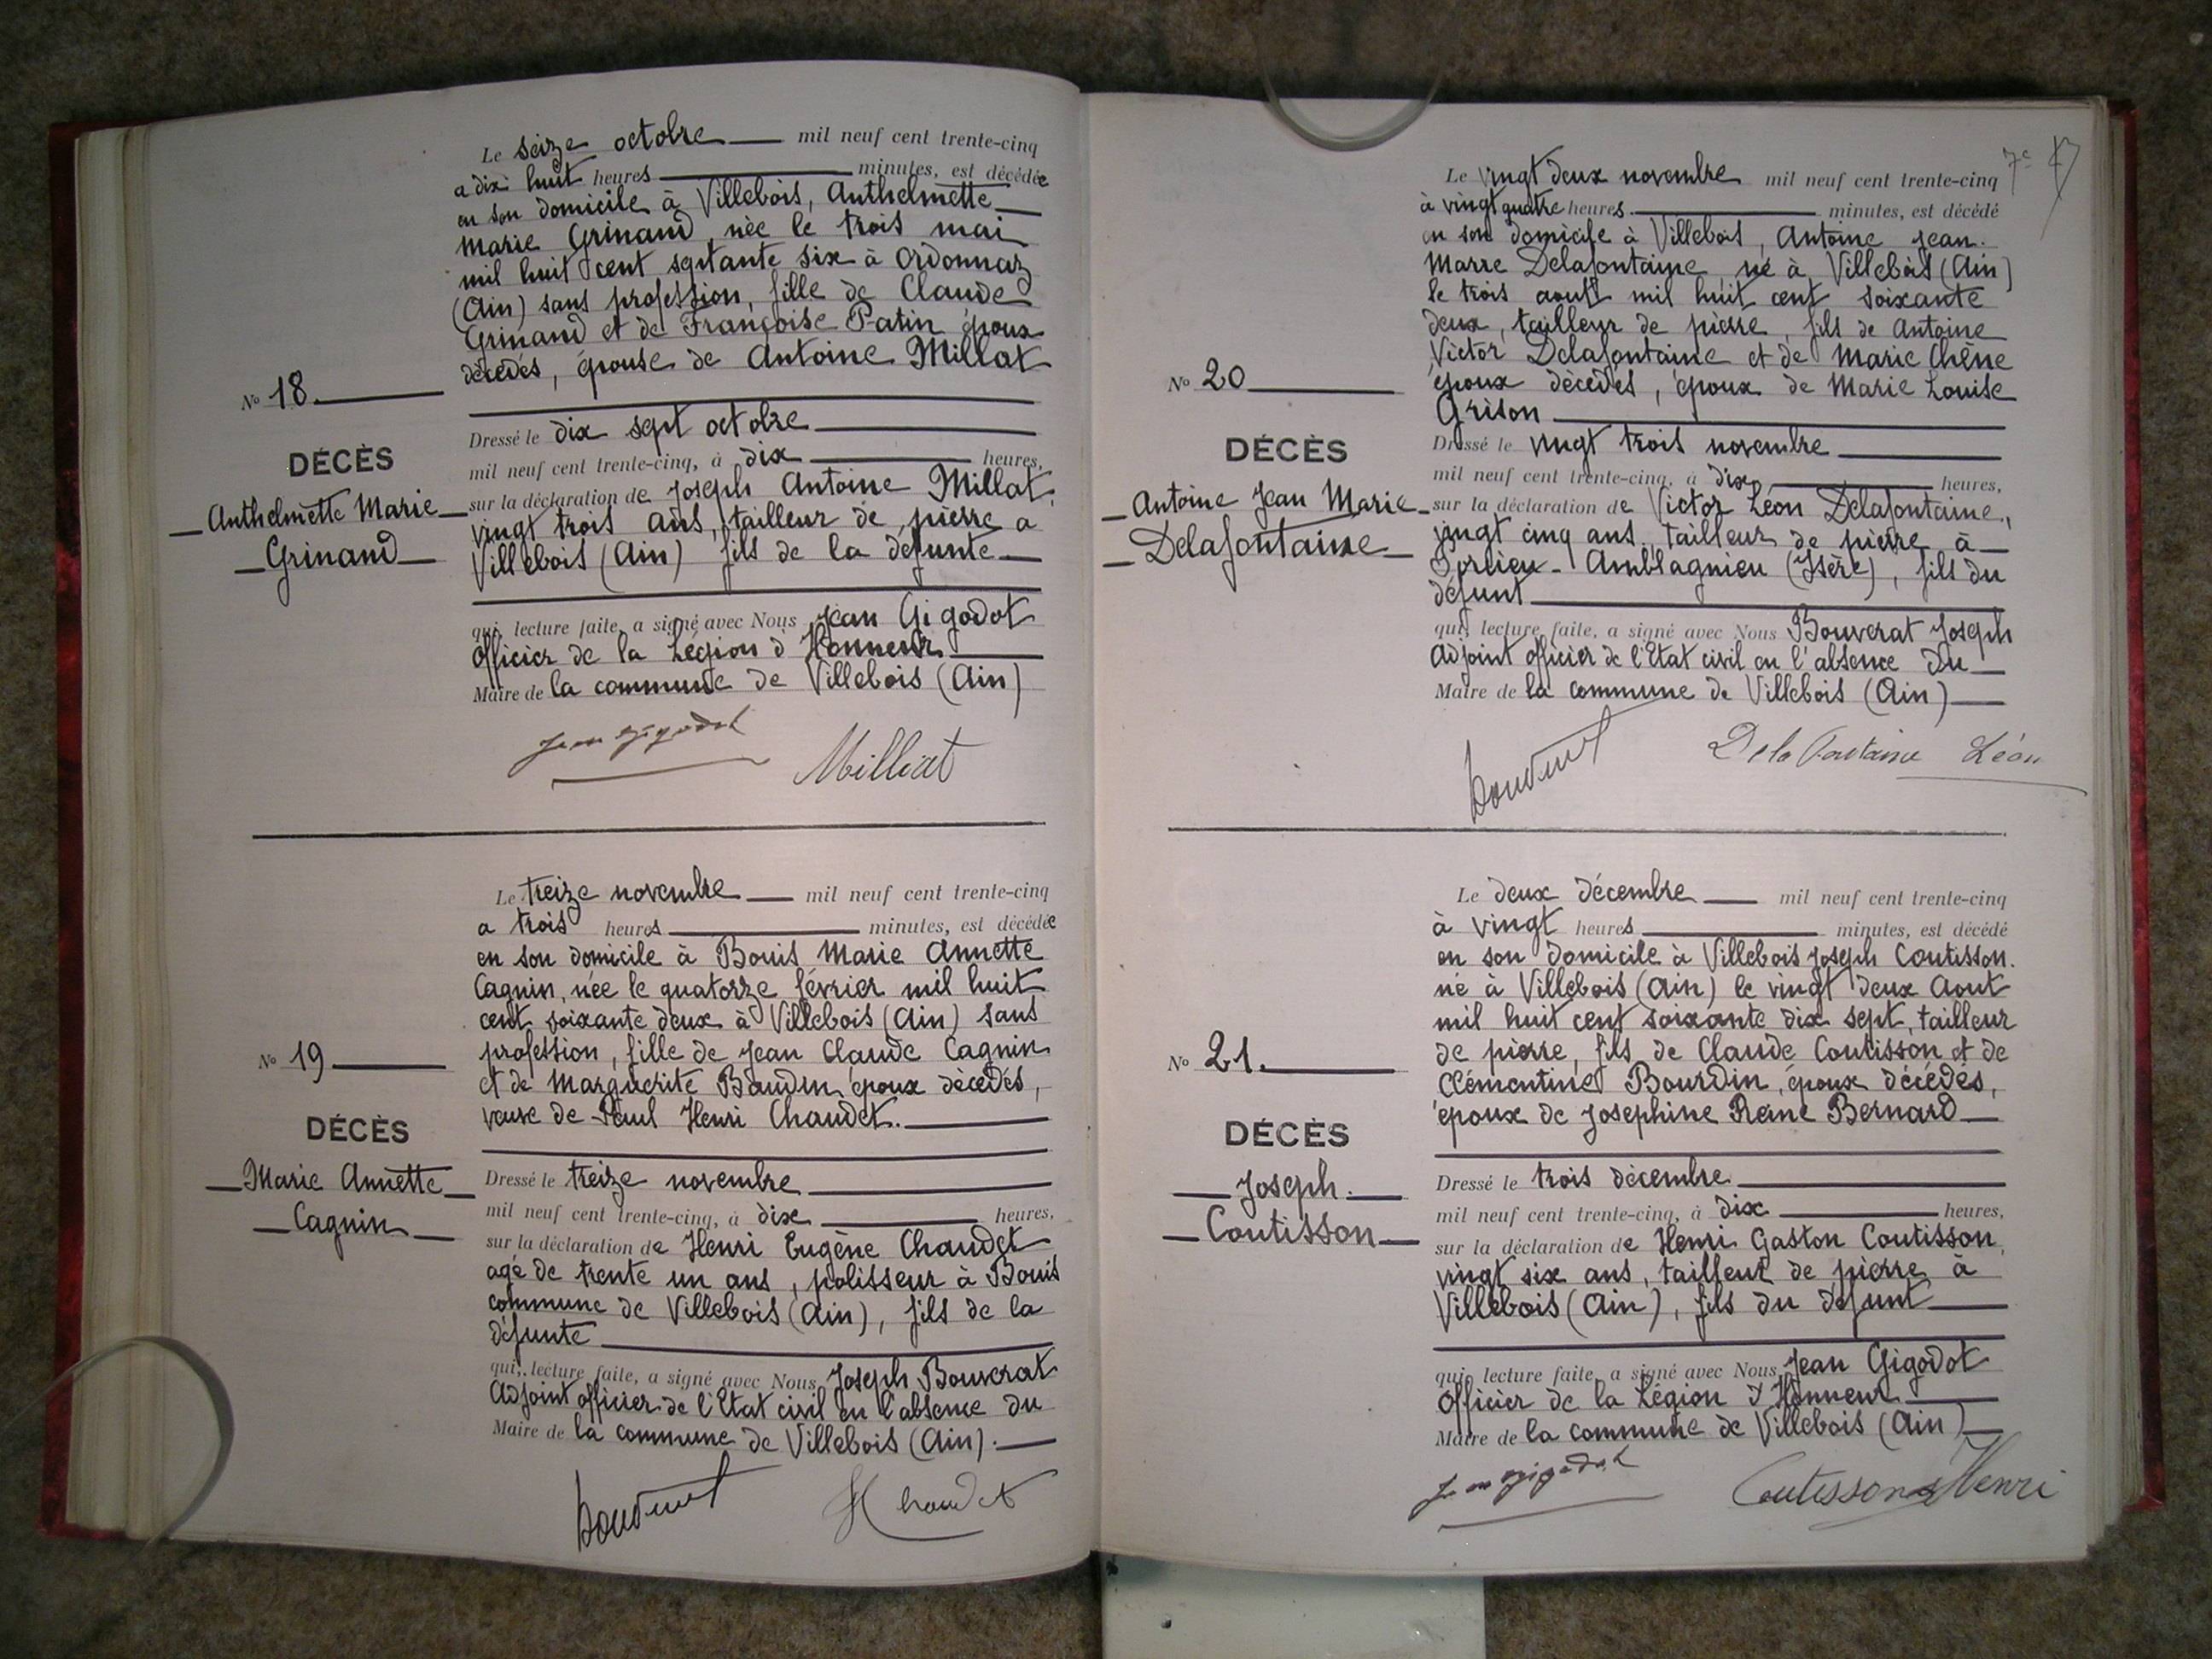 Le seize octobre mil neuf cent trente-cinq
a dix huit heures minutes, est décédée
en son domicile à Villebois, Anthelmette
Marie Grinand née le trois mai
mil huit cent septante six à Ordonnaz
(Ain) sans profession, fille de Claude
Grinand et de Françoise Patin époux
décédés, épouse de Antoine Millat
No 18.
DÉCÈS
Anthelmette Marie
Grinand
Dressé le dix sept octobre
mil neuf cent trente-cinq, à dix heures,
sur la déclaration de Joseph Antoine Millat,
vingt trois ans, tailleur de pierre a
Villebois (Ain) fils de la défunte
qui, lecture faite, a signé avec Nous Jean Gigodot
Officier de la Légion d'Honneur
Maire de la commune de Villebois (Ain)
Jean Gigodot Milliat
Le treize novembre mil neuf cent trente-cinq
a trois heures minutes, est décédée
en son domicile à Bouis Marie Annette
Cagnin, née le quatorze février mil huit
cent soixante deux à Villebois (Ain) sans
profession, fille de Jean Claude Cagnin
et de Marguerite Baudin époux décédés,
veuve de Paul Henri Chaudet.
No 19
DÉCÈS
Marie Annette
Cagnin
Dressé le treize novembre
mil neuf cent trente-cinq, à dix heures,
sur la déclaration de Henri Eugène Chaudet
agé de trente un ans, polisseur à Bouis
commune de Villebois (Ain), fils de la
défunte
qui, lecture faite, a signé avec Nous Joseph Bouverat
Adjoint officier de l'Etat civil en l'absence du
Maire de la commune de Villebois (Ain).
Bouverat H Chaudet
7e
Le vingt deux novembre mil neuf cent trente-cinq
à vingt quatre heures minutes, est décédé
en son domicile à Villebois, Antoine Jean
Marie Delafontaine, né à Villebois (Ain)
le trois aout mil huit cent soixante
deux, tailleur de pierre, fils de Antoine
Victor Delafontaine et de Marie Chêne
époux décédés, époux de Marie Louise
Grison
No 20
DÉCÈS
Antoine Jean Marie
Delafontaine
Dressé le vingt trois novembre
mil neuf cent trente-cinq, à dix heures,
sur la déclaration de Victor Léon Delafontaine,
vingt cinq ans, tailleur de pierre à
Porcieu-Amblagnieu (Isère), fils du
défunt
qui, lecture faite, a signé avec Nous Bouverat Joseph
Adjoint officier de l'Etat civil en l'absence du
Maire de la commune de Villebois (Ain)
Bouverat Delafontaine Léon
Le deux décembre mil neuf cent trente-cinq
à vingt heures minutes, est décédé
en son domicile à Villebois Joseph Coutisson.
né à Villebois (Ain) le vingt deux Aout
mil huit cent soixante dix sept, tailleur
de pierre, fils de Claude Coutisson et de
Clémentine Bourdin, époux décédés,
époux de Josephine Reine Bernard
No 21.
DÉCÈS
Joseph.
Coutisson
Dressé le trois décembre
mil neuf cent trente-cinq, à dix heures,
sur la déclaration de Henri Gaston Coutisson,
vingt six ans, tailleur de pierre à
Villebois (Ain), fils du défunt
qui, lecture faite, a signé avec Nous Jean Gigodot
Officier de la Légion d'Honneur
Maire de la commune de Villebois (Ain)
Jean Gigodot Coutisson Henri